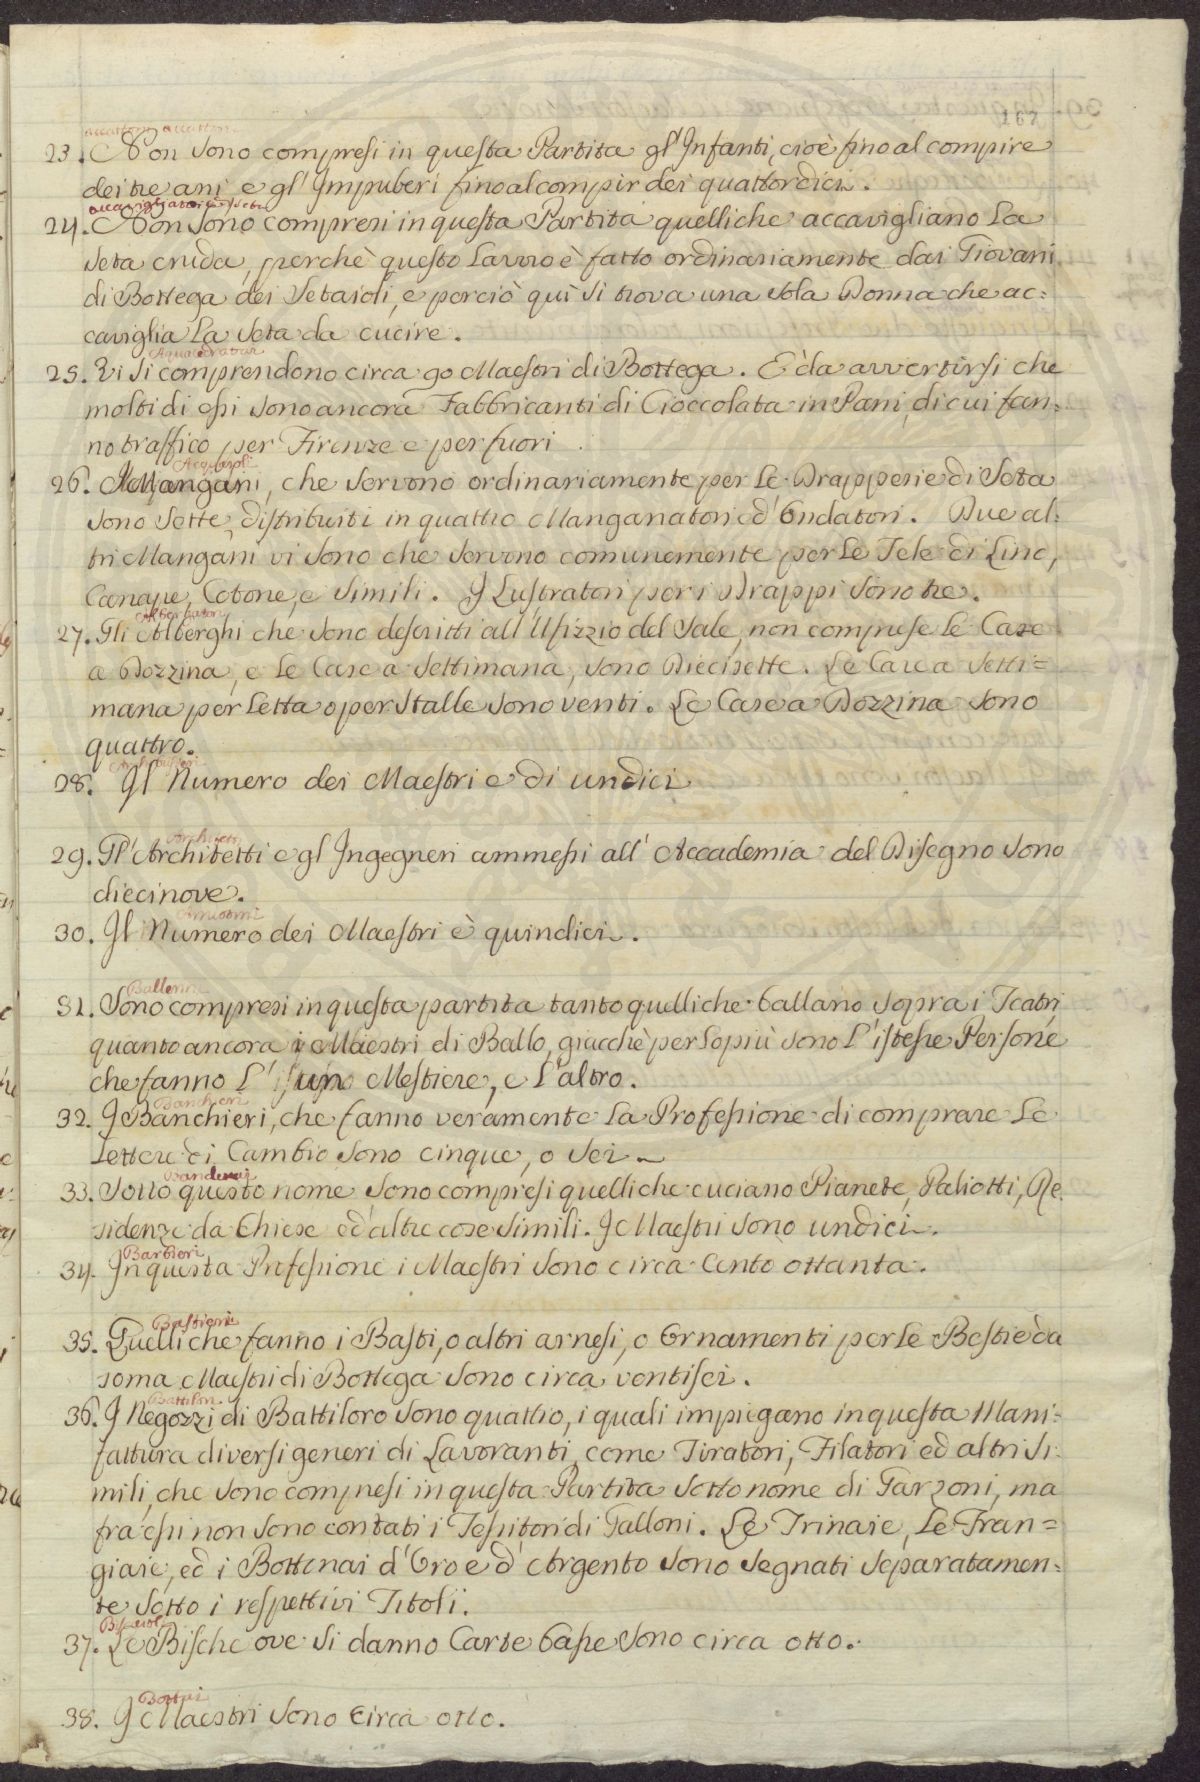 accattoni accattone
23. Non sono compresi in questa Partita gl'Infanti, cioè fino al compire
dei tre ani, e gl'Impuberi fino al compir dei quattordici.
accavigliatori e seta
24. Non sono compresi in questa Partita quelli che accavigliano la
seta cruda, perchè questo Lavoro è fatto ordinariamente dai Giovani
di Bottega dei Setaioli, e perciò quì si trova una sola Donna che ac=
caviglia la seta da cucire.
25. Vi si comprendono circa 90 Maestri di Bottega. È da avvertirsi che
molti di essi sono ancora Fabbricanti di Cioccolata in Pani, di cui fan=
no traffico per Firenze e per fuori
26. I Mangani, che servono ordinariamente per le Drapperie di Seta
sono sette, distribuiti in quattro Manganatori ed Ondatori. Due al:
tri Mangani vi sono che servono comunemente per le Tele di Lino,
Canape, Cotone, e simili. I Lustratori per i Drappi sono tre.
Albergatori
27. Gli Alberghi che sono descritti all'Ufizzio del Sale, non comprese le Case
a Dozzina, e le Case a Settimana, sono Diecisette. Le Case a Setti=
mana per Letta o per Stalle sono venti. Le Case a Dozzina sono
quattro.
28. Il Numero dei Maestri e di undici
Architetti
29. Gl'Architetti e gl Ingegneri ammessi all'Accademia del Disegno sono
diecinove.
30. Il Numero dei Maestri è quindici.
Ballerini
31. Sono compresi in questa partita tanto quelli che ballano sopra i Teatri
quanto ancora i Maestri di Ballo, giacchè per lo più sono l'istesse Persone
che fanno l'un Mestiere, e l'altro.
Banchieri
32. I Banchieri, che fanno veramente la Professione di comprare le
Lettere di Cambio sono cinque, o sei
Banderai
33. Sotto questo nome sono compresi quelli che cuciano Pianete, Paliotti, Re
sidenze da Chiese ed altre cose simili. I Maestri sono undici.
Barbieri
34. In questa Professione i Maestri sono circa cento ottanta.
Bastieri
35. Quelli che fanno i Basti, o altri arnesi, o Ornamenti per le Bestie da
soma Maestri di Bottega sono circa ventisei.
Battilori
36. I Negozzi di Battiloro sono quattro, i quali impiegano in questa Mani=
fattura diversi generi di Lavoranti, come Tiratori, Filatori ed altri si:
mili, che sono compresi in questa Partita sotto nome di Garzoni, ma
fra essi non sono contati i Tessitori di Galloni. Le Trinaie, le Fran=
giaie, ed i Bottonai d'Oro e d'Argento sono segnati separatamen=
te sotto i respettivi Titoli.
37. Le Bische ove si danno Carte basse sono circa otto.
Bottai
38. I Maestri sono circa otto.